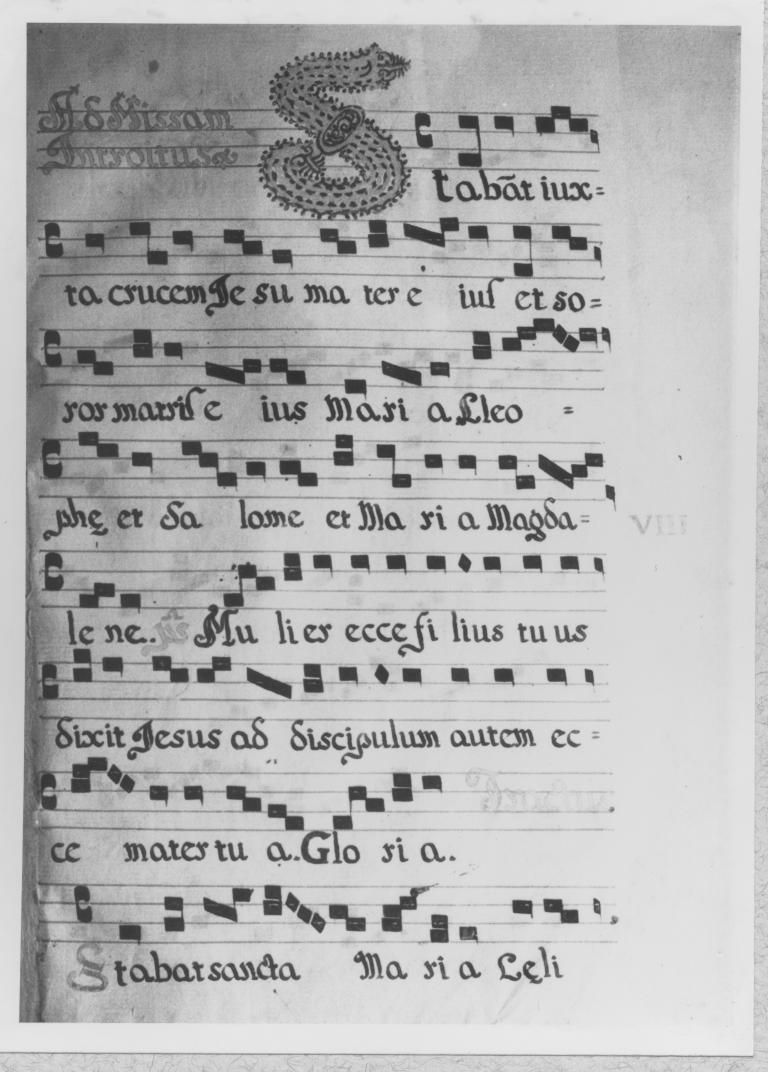 Ad Missam
Introitus
Stabāt iux=
ta crucem Je su ma ter e iuſ et so=
ror matriſ e ius Mari a Cleo =
phę et Sa lome et Ma ri a Magda=
le ne.. ℣s Mu lier ecce fi lius tu us
dixit Jesus ad discipulum autem ec=
ce mater tu a..Glo ri a.
Stabat sancta Ma ri a Cęli
VIII